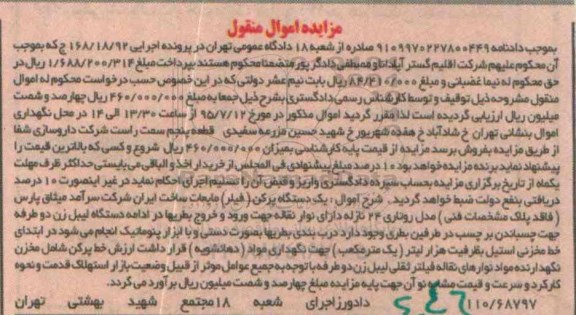 مزایده اموال منقول
بموجب دادنامه ۹۱۰۹۹۷۰۲۲۷۸۰۰۴۴۹ صادره از شعبه ۱۸ دادگاه عمومی تهران در پرونده اجرایی ۱۶۸/۱۸/۹۲ ج که بموجب
آن محکوم علیهم شرکت اقلیم گستر آپادانا و مصطفی دادگر پور متضمنا محکوم هستند بپرداخت مبلغ ۱/۶۸۸/۲۰۰/۳۱۴ ریال در
حق محکوم له نیما غضبانی و مبلغ ۸۴/۴۱۰/۰۰۰ ریال بابت نیم عشر دولتی که در این خصوص حسب درخواست محکوم له اموال
منقول مشروحه ذیل توقیف و توسط کارشناس رسمی دادگستری بشرح ذیل جمعا به مبلغ ۴۶۰/۰۰۰/۰۰۰ ریال چهارصد و شصت
میلیون ریال ارزیابی گردیده است لذا مقرر گردید اموال مذکور در مورخ ۹۵/۷/۱۲ از ساعت ۱۳/۳۰ الی ۱۴ در محل نگهداری
اموال بنشانی تهران خ شادآباد خ هفده شهریور خ شهید حسین مزرعه سفیدی قطعه پنجم سمت راست شرکت داروسازی شفا
از طریق مزایده بفروش برسد مزایده از قیمت پایه کارشناسی بمیزان ۴۶۰/۰۰۰/۰۰۰ ریال شروع و کسی که بالاترین قیمت را
پیشنهاد نماید برنده مزایده خواهد بود ۱۰ درصد مبلغ پیشنهادی فی المجلس از خریدار اخذ و الباقی می بایستی حداکثر ظرف مهلت
یکماه از تاریخ برگزاری مزایده بحساب سپرده دادگستری واریز و فیش آن را تسلیم اجرای احکام نماید در غیر اینصورت ۱۰ درصد
دریافتی بنفع دولت ضبط خواهد گردید. شرح اموال: یک دستگاه پرکن (فیلر) مایعات ساخت ایران شرکت سرآمد میثاق پارس
(فاقد پلاک مشخصات فنی) مدل روتاری ۲۴ نازله دارای نوار نقاله جهت ورود و خروج بطریها در ادامه دستگاه لیبل زن دو طرفه
جهت چسباندن بر چسب در طرفین بطری وجود دارد درب بندی بطریها بصورت دستی و با ابزار پنوماتیک انجام می شود در ابتدای
خط مخزنی استیل بظرفیت هزار لیتر (یک مترمکعب) جهت نگهداری مواد (دهانشویه) قرار داشت ارزش خط پرکن شامل مخزن
نگهدارنده مواد نوارهای نقاله فیلتر ثقلی لیبل زن دو طرفه با توجه به جمیع عوامل موثر از قبیل وضعیت بازار استهلاک قدمت و نحوه
کارکرد و سرعت و قیمت مشابه نو آن جهت پایه مزایده مبلغ چهارصد و شصت میلیون ریال برآورد می گردد.
۱۱۰/۶۸۷۹۷ دادورز اجرای شعبه ۱۸ مجتمع شهید بهشتی تهران